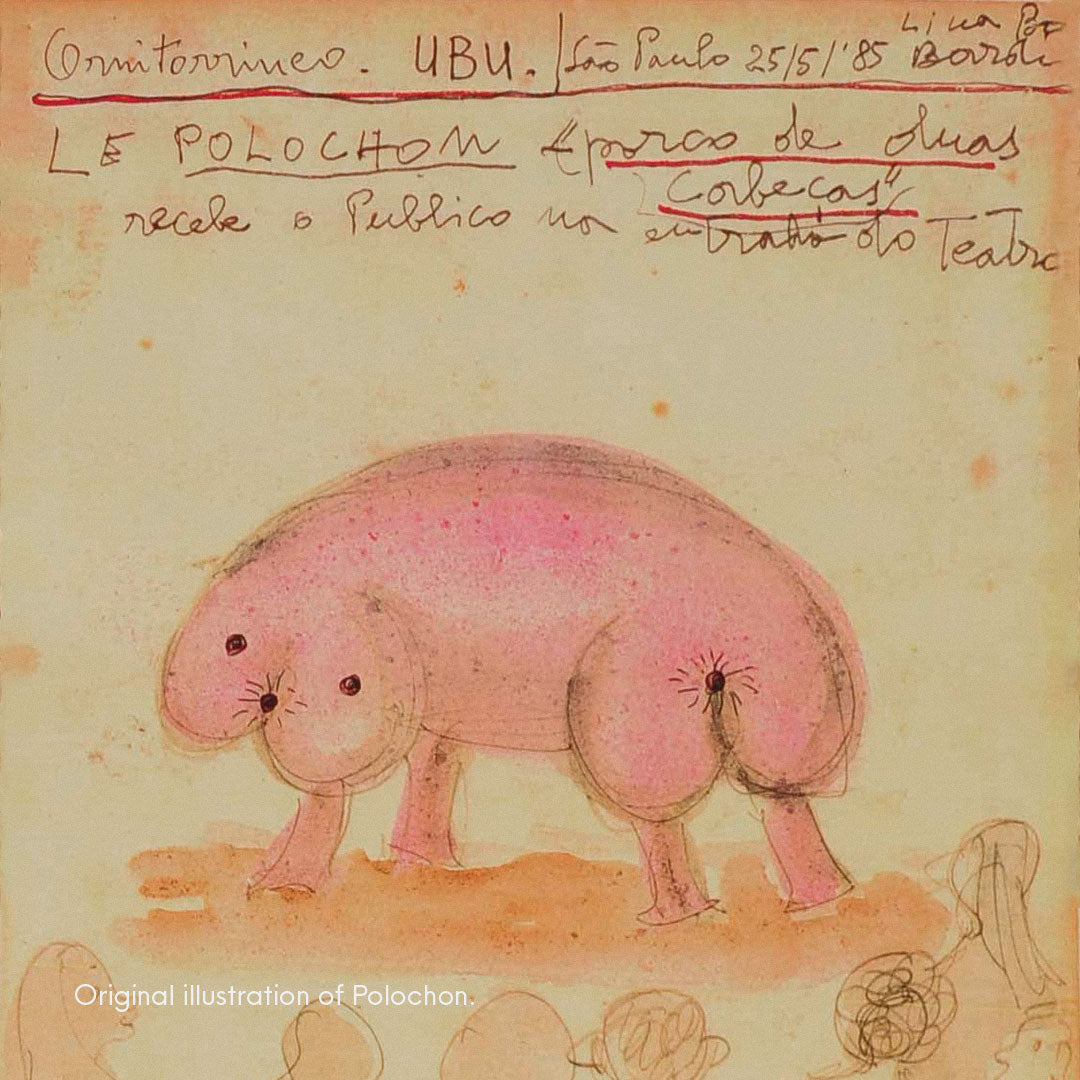 Ornitorrinco. UBU. / São Paulo 25/5/'85 Lina Bo Bardi
LE POLOCHON "porco de duas
cabeças"
recebe o Publico na entrada do Teatro
Original illustration of Polochon.